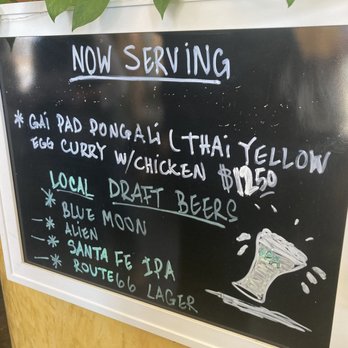 NOW SERVING
* GAI PAD PONGALI (THAI YELLOW
EGG CURRY W/CHICKEN $12.50
LOCAL DRAFT BEERS
* BLUE MOON
— * ALIEN
— * SANTA FE IPA
— * ROUTE 66 LAGER